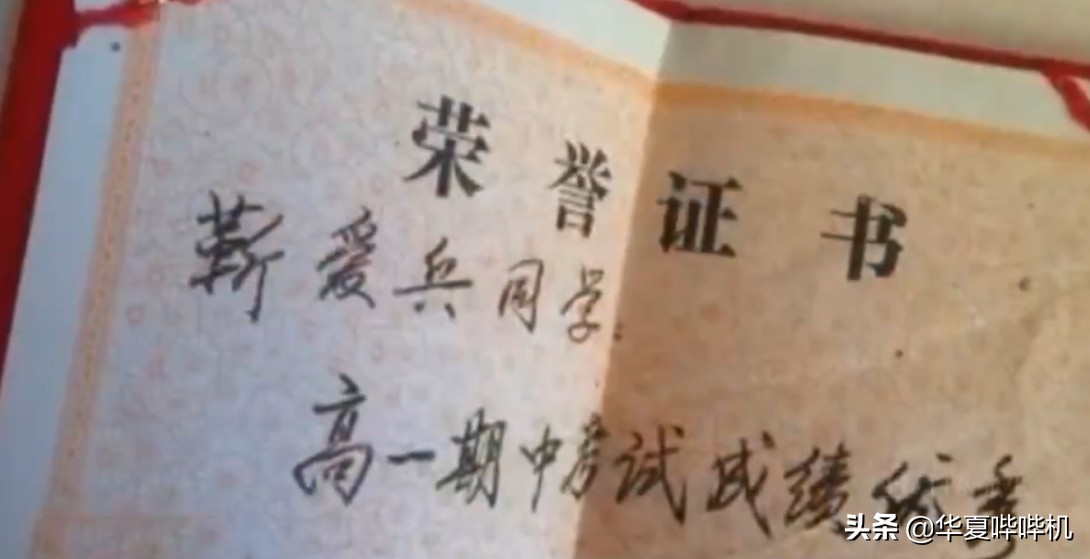 荣誉证书
靳爱兵同学:
高一期中考试成绩优秀
头条 @华夏哔哔机